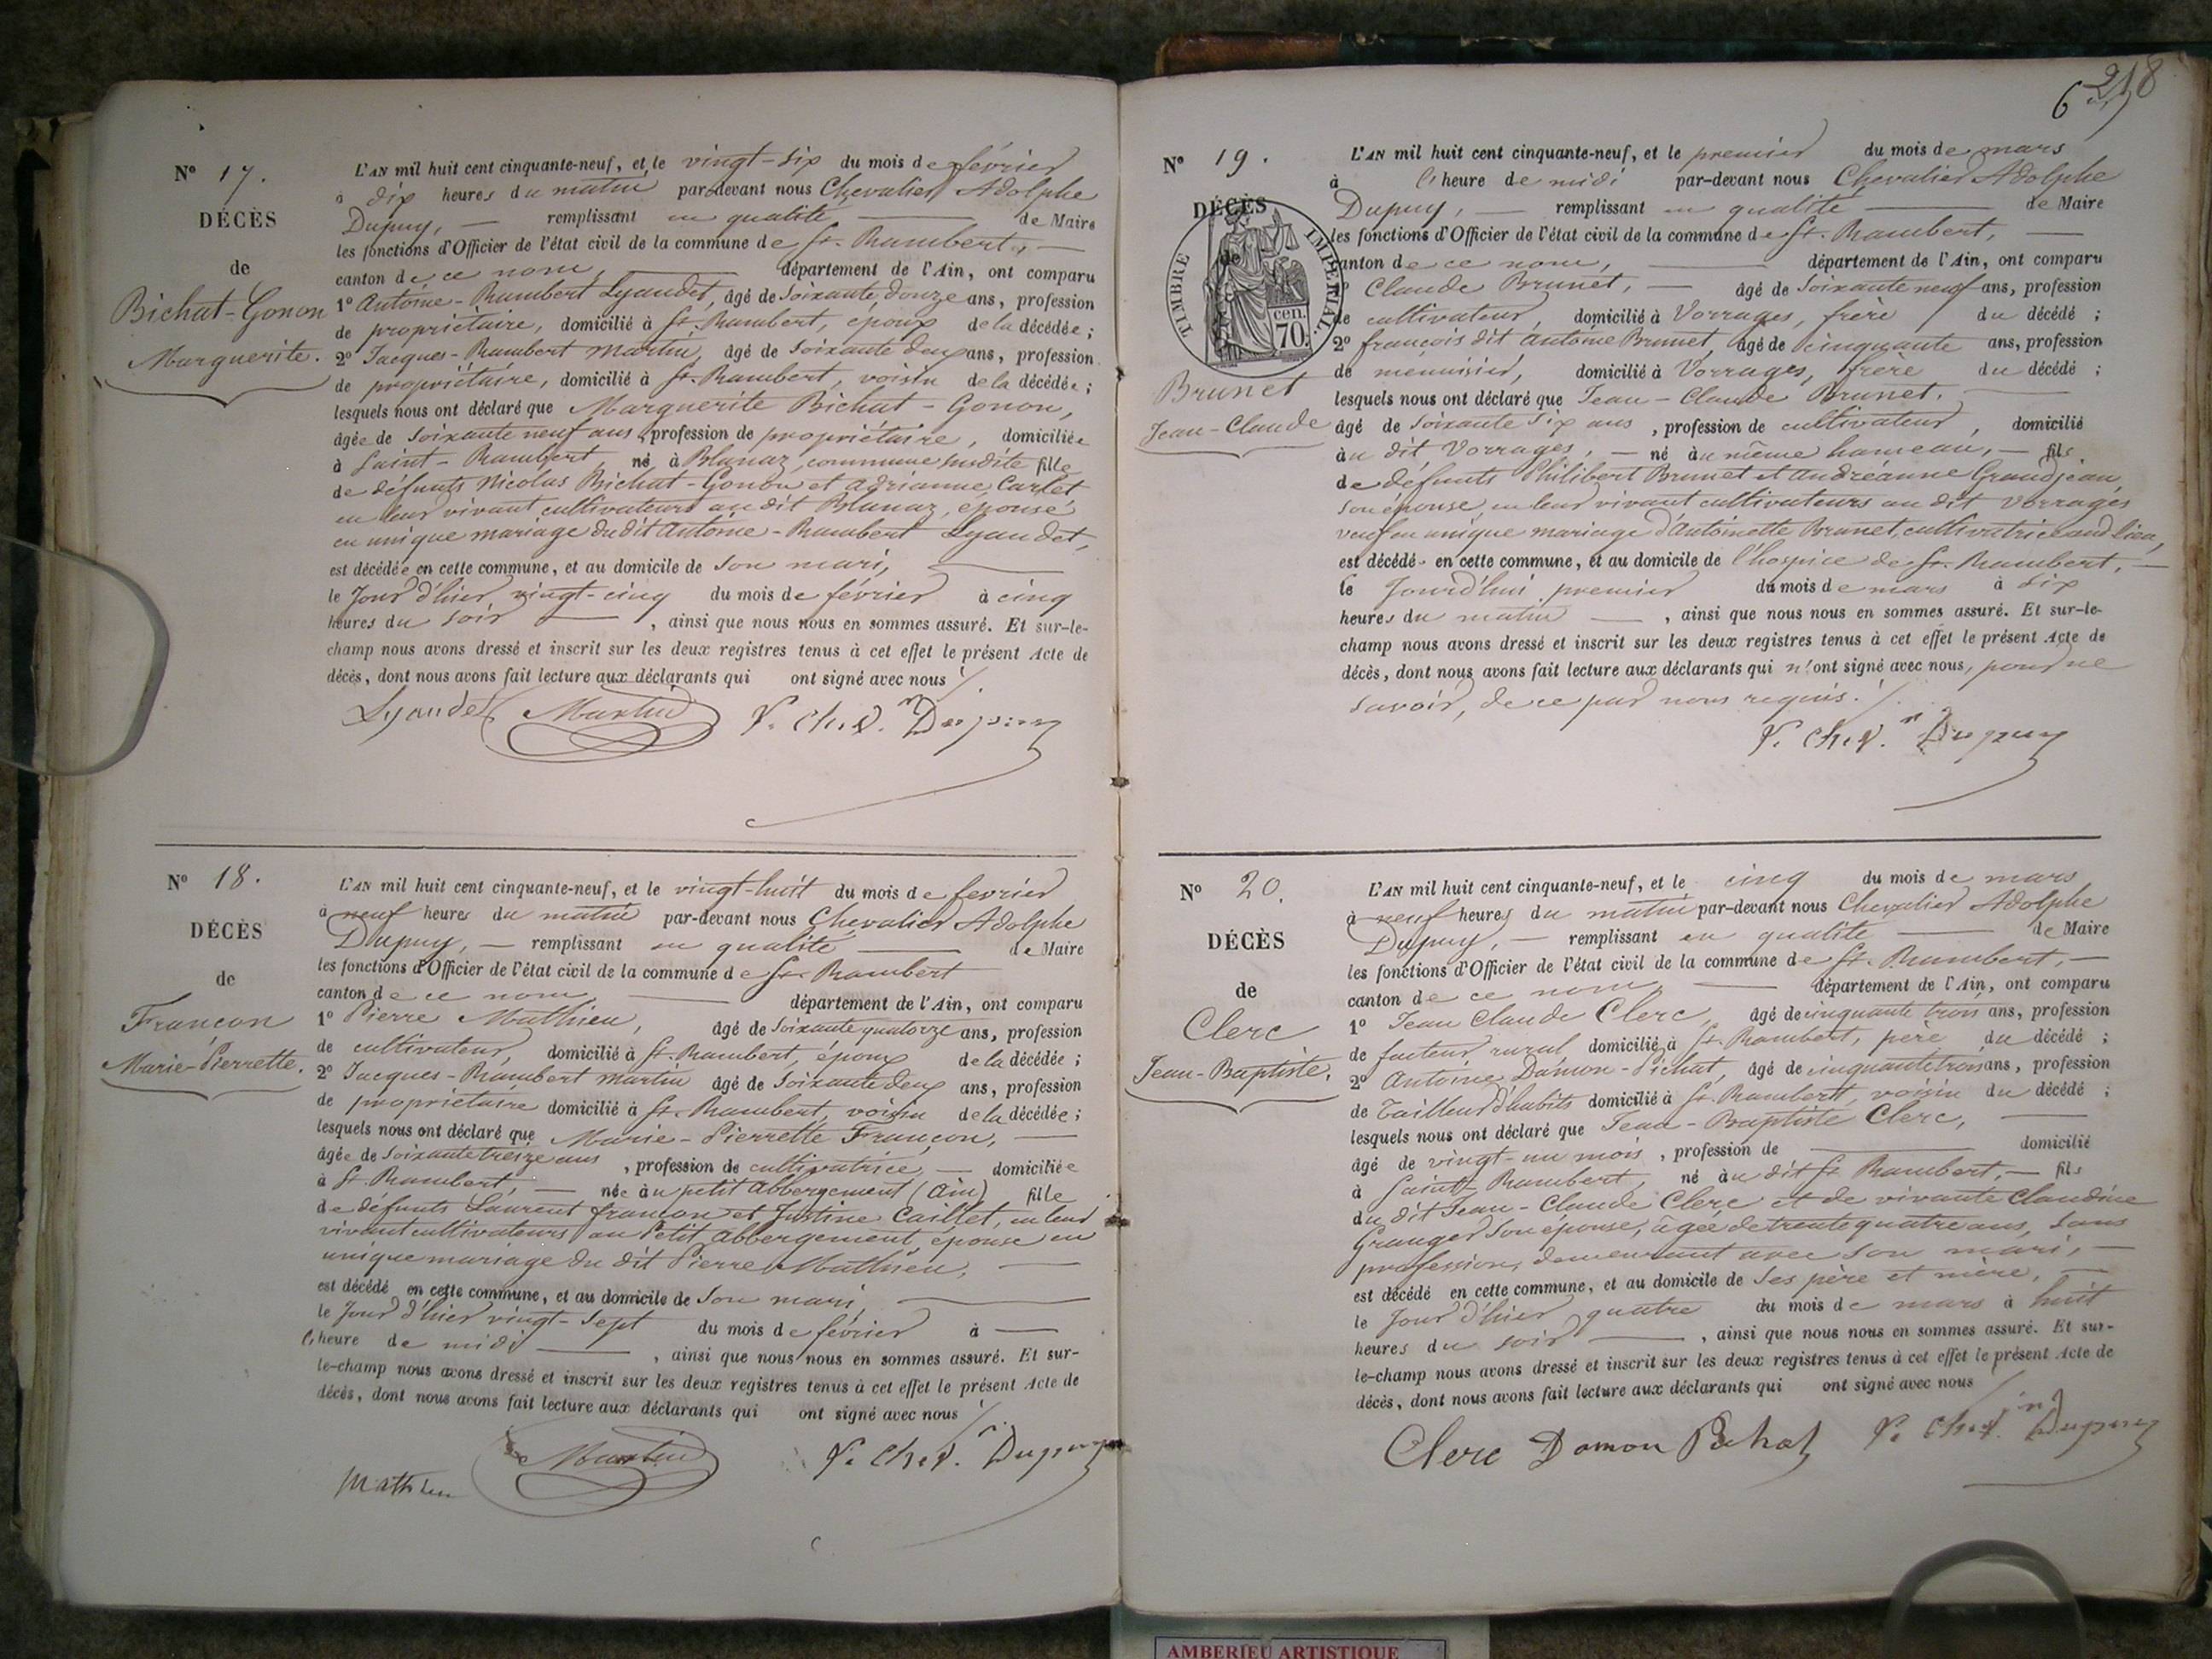 N° 17.
DÉCÈS
de
Bichat-Gonon
Marguerite.
L'AN mil huit cent cinquante-neuf, et le vingt-six du mois de février
à dix heures du matin par-devant nous Chevalier Adolphe
Dupuy, — remplissant en qualité — de Maire
les fonctions d'Officier de l'état civil de la commune de St. Rambert, —
canton de ce nom, — département de l'Ain, ont comparu
1° Antoine-Rambert Lyaudet, âgé de soixante douze ans, profession
de propriétaire, domicilié à St. Rambert, époux de la décédée ;
2° Jacques-Rambert Martin, âgé de soixante deux ans, profession
de propriétaire, domicilié à St. Rambert, voisin de la décédée ;
lesquels nous ont déclaré que Marguerite Bichat-Gonon,
âgée de soixante neuf ans, profession de propriétaire, domiciliée
à Saint-Rambert, né à Blanaz, commune susdite fille
de défunts Nicolas Bichat-Gonon et Adrianne Carlet
en leur vivant cultivateurs au dit Blanaz, épouse
en unique mariage du dit Antoine-Rambert Lyaudet,
est décédée en cette commune, et au domicile de son mari, —
le jour d'hier vingt-cinq du mois de février à cinq
heures du soir — , ainsi que nous nous en sommes assuré. Et sur-le-
champ nous avons dressé et inscrit sur les deux registres tenus à cet effet le présent Acte de
décès, dont nous avons fait lecture aux déclarants qui ont signé avec nous
Lyaudet Martin V. Chev. Dupuy
N° 18.
DÉCÈS
de
Françon
Marie-Pierrette.
L'AN mil huit cent cinquante-neuf, et le vingt-huit du mois de fevrier
à neuf heures du matin par-devant nous Chevalier Adolphe
Dupuy, — remplissant en qualité — de Maire
les fonctions d'Officier de l'état civil de la commune de St. Rambert
canton de ce nom — département de l'Ain, ont comparu
1° Pierre Mathieu, âgé de soixante quatorze ans, profession
de cultivateur, domicilié à St. Rambert, époux de la décédée ;
2° Jacques-Rambert Martin âgé de soixante deux ans, profession
de propriétaire domicilié à St. Rambert, voisin de la décédée ;
lesquels nous ont déclaré que Marie-Pierrette Françon, —
âgée de soixante treize ans , profession de cultivatrice — domiciliée
à St. Rambert, — née au petit Abbergement (Ain) fille
de défunts Laurent françon et Justine Caillet, en leur
vivant cultivateurs au Petit Abbergement, épouse en
unique mariage du dit Pierre Mathieu, —
est décédé en cette commune, et au domicile de son mari, —
le jour d'hier vingt-sept du mois de février à —
l'heure de midi — , ainsi que nous nous en sommes assuré. Et sur-
le-champ nous avons dressé et inscrit sur les deux registres tenus à cet effet le présent Acte de
décès, dont nous avons fait lecture aux déclarants qui ont signé avec nous
Mathieu Martin V. Chev. Dupuy
6 218
N° 19.
DÉCÈS
de
TIMBRE IMPÉRIAL.
70 cen.
Brunet
Jean-Claude
L'AN mil huit cent cinquante-neuf, et le premier du mois de mars
à l'heure de midi par-devant nous Chevalier Adolphe
Dupuy, — remplissant en qualité — de Maire
les fonctions d'Officier de l'état civil de la commune de St. Rambert, —
canton de ce nom, — département de l'Ain, ont comparu
Claude Brunet, — âgé de soixante neuf ans, profession
de cultivateur, domicilié à Vorrages, frère du décédé ;
2° françois dit Antoine Brunet, âgé de cinquante ans, profession
de menuisier, domicilié à Vorrages, frère du décédé ;
lesquels nous ont déclaré que Jean-Claude Brunet, —
âgé de soixante six ans , profession de cultivateur, domicilié
au dit Vorrages, — né au même hameau, — fils
de défunts Philibert Brunet et Andréanne Grandjean
son épouse, en leur vivant cultivateurs au dit Vorrages
veuf en unique mariage d'Antoinette Brunet, cultivatrice aud. lieu,
est décédé en cette commune, et au domicile de l'hospice de St. Rambert, —
le jourd'hui premier du mois de mars à dix
heures du matin — , ainsi que nous nous en sommes assuré. Et sur-le-
champ nous avons dressé et inscrit sur les deux registres tenus à cet effet le présent Acte de
décès, dont nous avons fait lecture aux déclarants qui n'ont signé avec nous, pour ne
savoir, de ce par nous requis.
V. Chev. Dupuy
N° 20.
DÉCÈS
de
Clerc
Jean-Baptiste.
L'AN mil huit cent cinquante-neuf, et le cinq du mois de mars
à neuf heures du matin par-devant nous Chevalier Adolphe
Dupuy, — remplissant en qualité — de Maire
les fonctions d'Officier de l'état civil de la commune de St. Rambert, —
canton de ce nom, — département de l'Ain, ont comparu
1° Jean Claude Clerc, âgé de cinquante trois ans, profession
de facteur rural, domicilié à St. Rambert, père du décédé ;
2° Antoine Damon-Pichat, âgé de cinquante trois ans, profession
de Tailleur d'habits domicilié à St. Rambert, voisin du décédé ;
lesquels nous ont déclaré que Jean-Baptiste Clerc, —
âgé de vingt-un mois , profession de — domicilié
à Saint Rambert, né au dit St. Rambert, — fils
du dit Jean-Claude Clerc et de vivante Claudine
Granger son épouse, âgée de trente quatre ans, sans
profession, demeurant avec son mari, —
est décédé en cette commune, et au domicile de ses père et mère, —
le jour d'hier quatre du mois de mars à huit
heures du soir — , ainsi que nous nous en sommes assuré. Et sur-
le-champ nous avons dressé et inscrit sur les deux registres tenus à cet effet le présent Acte de
décès, dont nous avons fait lecture aux déclarants qui ont signé avec nous
Clerc Damon Pichat V. Chev. Dupuy
AMBERIEU ARTISTIQUE